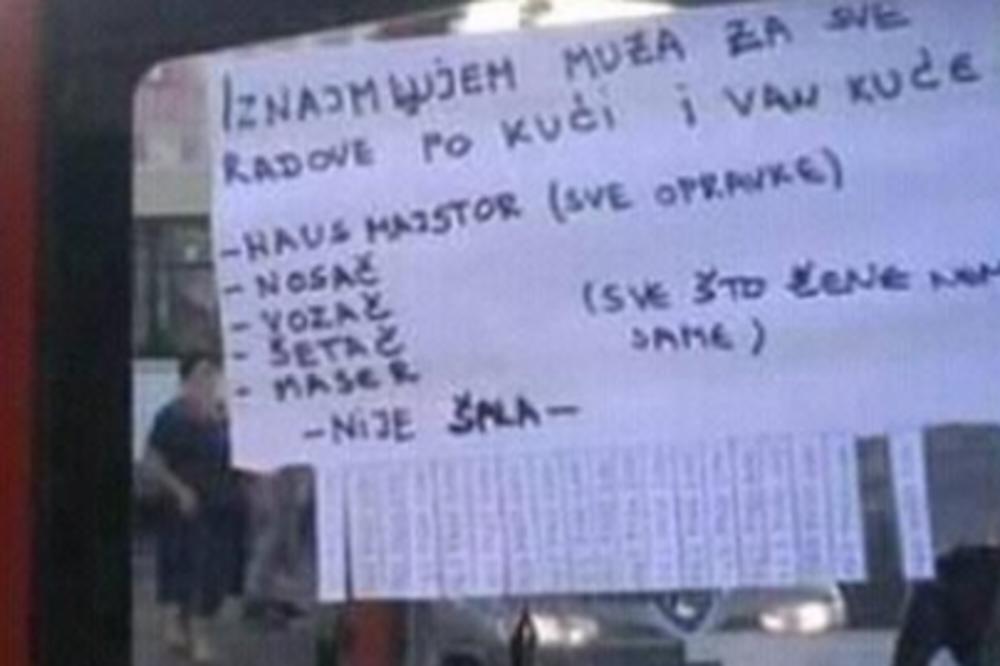 IZNAJMLJUJEM MUŽA ZA SVE
RADOVE PO KUĆI i VAN KUĆE
-HAUS MAJSTOR (SVE OPRAVKE)
-NOSAČ
-VOZAČ
-ŠETAČ
-MASER
(SVE ŠTO ŽENE
SAME)
-NIJE ŠALA-